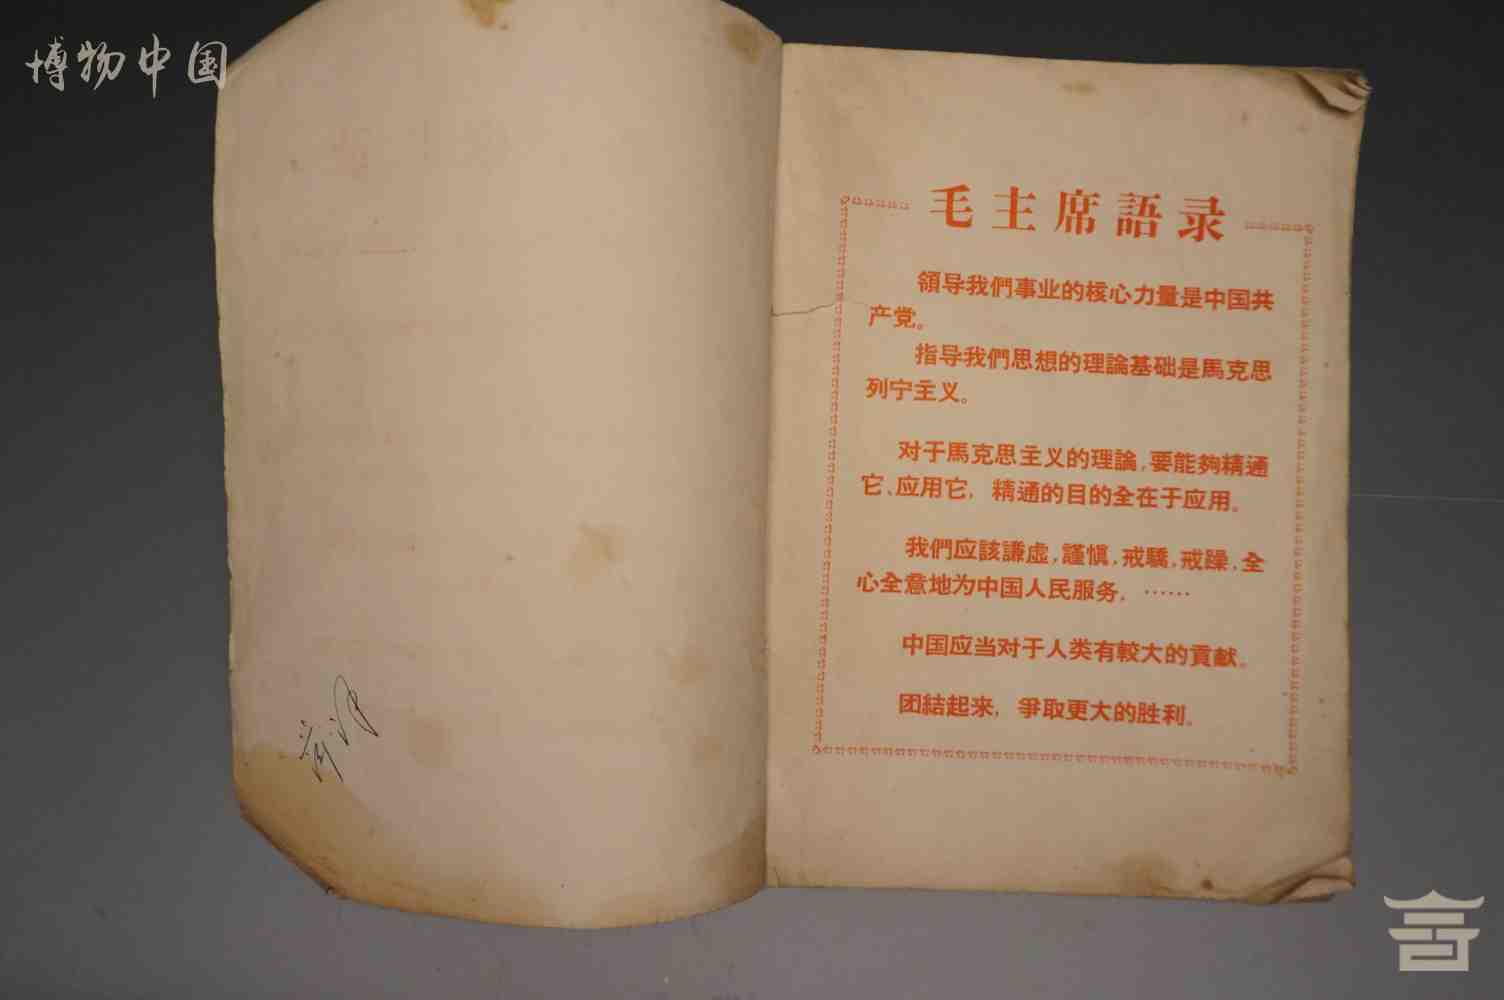 博物中国
毛主席語录
領导我們事业的核心力量是中国共
产党。
指导我們思想的理論基础是馬克思
列宁主义。
对于馬克思主义的理論，要能夠精通
它、应用它，精通的目的全在于应用。
我們应該謙虛，謹愼，戒驕，戒躁，全
心全意地为中国人民服务，……
中国应当对于人类有較大的貢献。
团結起来，爭取更大的胜利。